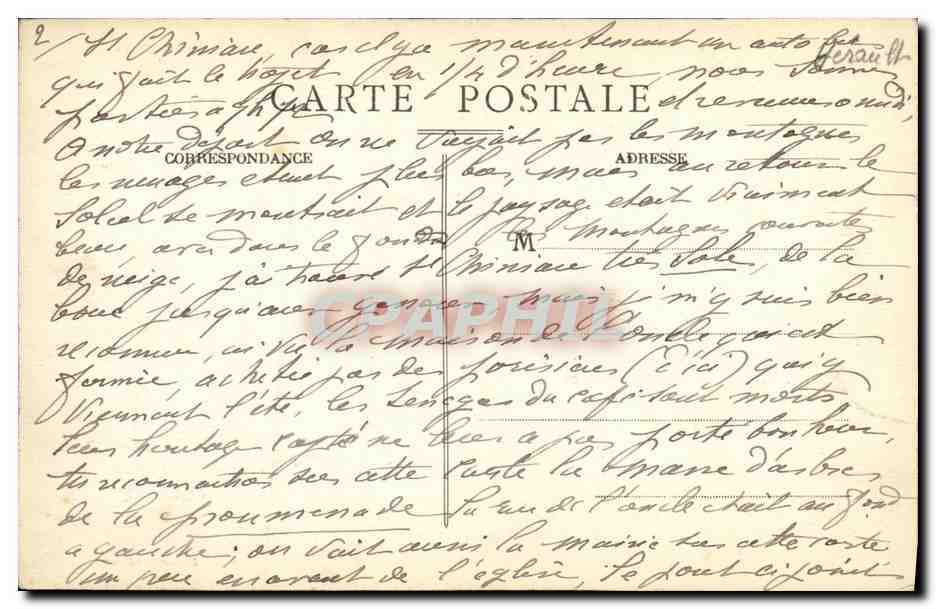 2/ St Chinian, car il y a maintenant un auto bus
Herault
qui fait le trajet en 1/4 d'heure, nous sommes
CARTE POSTALE
parties à et revenues à midi,
A notre départ on ne voyait pas les montagnes
CORRESPONDANCE ADRESSE
les nuages etant plus bas, mais au retour le
Soleil se montrait et le paysage etait vraiment
beau, avec dans le fond montagnes couvertes
M
de neige, j'ai trouvé St Chinian très sale, de la
boue jusqu'aux genoux, mais je m'y suis bien
CPAPHIL
reconnue, ai vu la maison de l'oncle qui est
fermée, achetée par des parisiens (d'ici) qui y
viennent l'été, les Senegas du café sont morts
leur heritage ne leur a pas porté bonheur,
tu reconnaitras sur cette carte la masse d'arbres
de la proumenade la rue de l'oncle etait au fond
a gauche; on voit aussi la mairie sur cette carte
un peu en avant de l'église, le pont